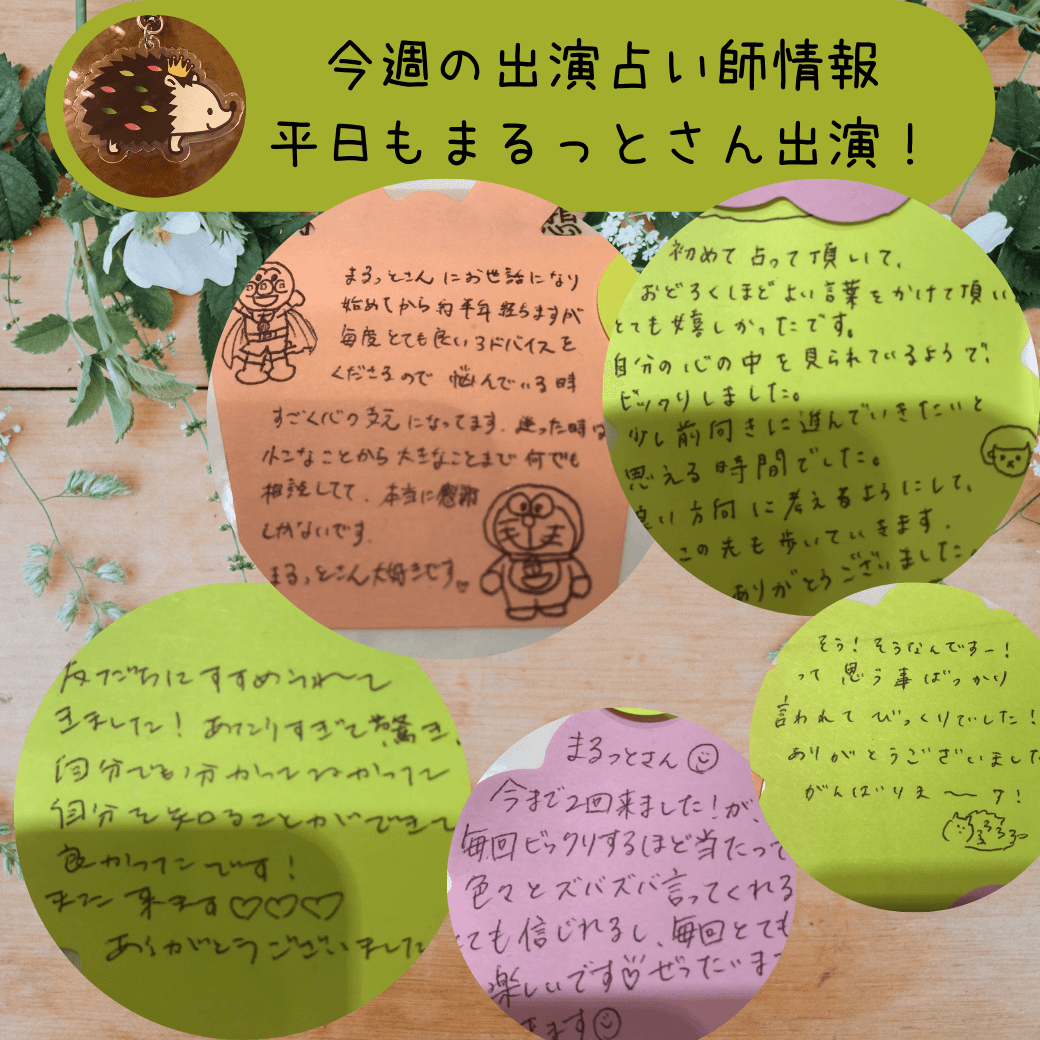 今週の出演占い師情報
平日もまるっとさん出演！
まるっとさんにお世話になり
始めてから約半年経ちますが
毎度とても良いアドバイスを
くださるので 悩んでいる時
すごく心の支えになってます。迷った時は
小さなことから大きなことまで何でも
相談してて、本当に感謝
しかないです。
まるっとさん大好きです。
初めて占って頂いて、
おどろくほどよい言葉をかけて頂い
とても嬉しかったです。
自分の心の中を見られているようで、
ビックリしました。
少し前向きに進んでいきたいと
思える時間でした。
良い方向に考えるようにして、
この先も歩いていきます。
ありがとうございました。
友だちにすすめられて
きました！あたりすぎて驚き、
自分でも分かってなかった
自分を知ることができて
良かったです！
また来ます♡♡♡
ありがとうございました
まるっとさん
今まで2回来ました！が、
毎回ビックリするほど当たって
色々とズバズバ言ってくれる
とても信じれるし、毎回とても
楽しいです♡ぜったいまた
きます
そう！そうなんですー！
って思う事ばっかり
言われてびっくりでした！
ありがとうございました
がんばりまーす！